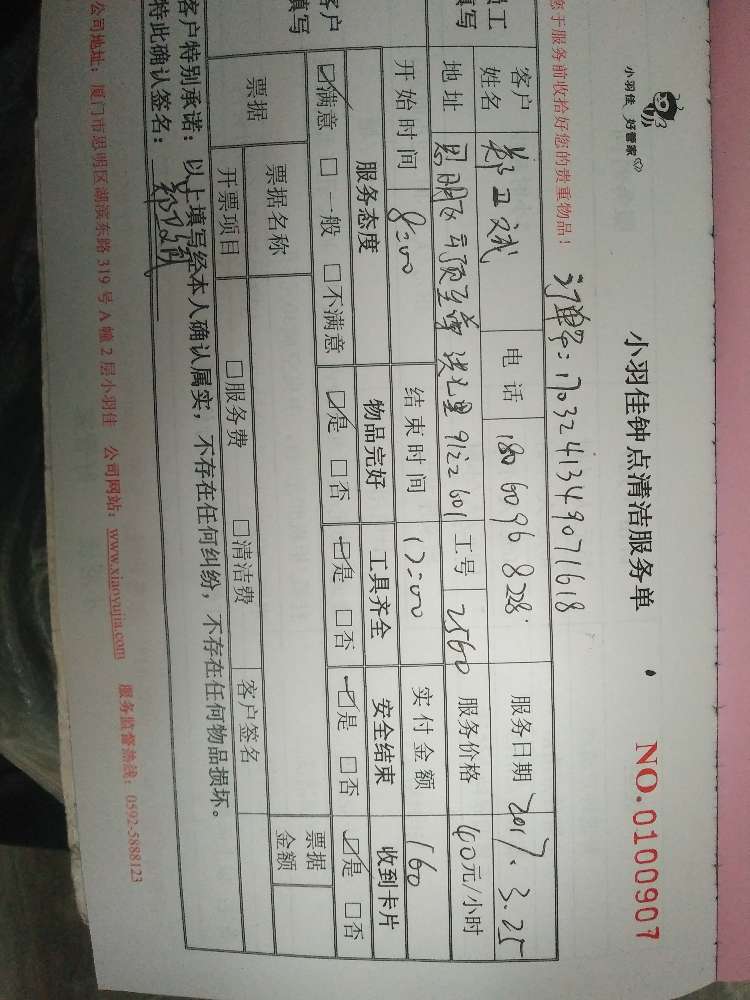 小羽佳 好管家
小羽佳钟点清洁服务单
NO.0100907
您于服务前收拾好您的贵重物品！
订单号：1703241349071618
员工
填写
客户
姓名
电话
服务日期
2017.3.25
地址
思明区
工号
2560
服务价格
40元/小时
开始时间
8:00
结束时间
12:00
实付金额
160
客户
填写
服务态度
物品完好
工具齐全
安全结束
收到卡片
☑满意 □一般 □不满意
☑是 □否
☑是 □否
☑是 □否
☑是 □否
票据
票据名称
票据
金额
开票项目
□服务费 □清洁费
客户签名
客户特别承诺：以上填写经本人确认属实，不存在任何纠纷，不存在任何物品损坏。
特此确认签名：
公司地址：厦门市思明区湖滨东路319号A幢2层小羽佳 公司网站：www.xiaoyujia.com 服务监督热线：0592-5888123